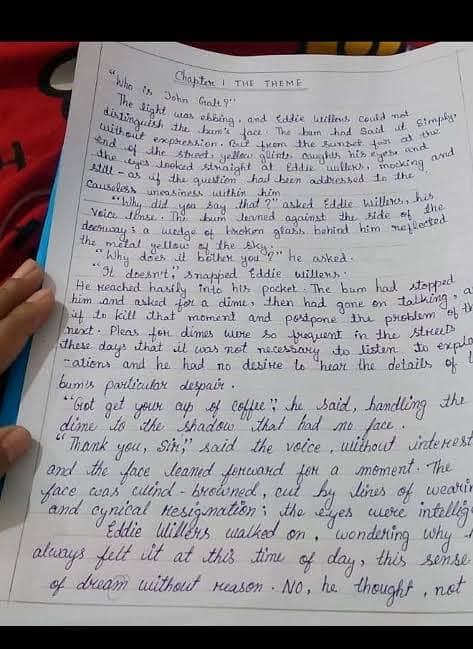 Chapter 1 THE THEME
"Who is John Galt?"
The light was ebbing, and Eddie Willers could not
distinguish the bum's face. The bum had said it simply,
without expression. But from the sunset far at the
end of the street, yellow glints caught his eyes, and
the eyes looked straight at Eddie Willers, mocking and
still - as if the question had been addressed to the
causeless uneasiness within him
"Why did you say that?" asked Eddie Willers, his
voice tense. The bum leaned against the side of the
doorway; a wedge of broken glass behind him reflected
the metal yellow of the sky.
"Why does it bother you?" he asked.
"It doesn't", snapped Eddie Willers.
He reached hasily into his pocket. The bum had stopped
him and asked for a dime, then had gone on talking, a
if to kill that moment and postpone the problem of th
next. Pleas for dimes were so frequent in the streets
these days that it was not necessary to listen to expla
-ations and he had no desire to hear the details of
bum's particular despair.
"Got get your cup of coffee", he said, handling the
dime to the shadow that had no face.
"Thank you, Sir," said the voice, without interest
and the face leaned forward for a moment. The
face was wind-browned, cut by lines of wearin
and cynical resignation; the eyes were intellig
Eddie Willers walked on, wondering why
always felt it at this time of day, this sense
of dream without reason. NO, he thought, not